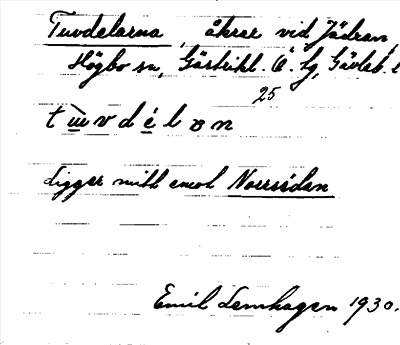 Tuvdelarna, åkrar vid Jädran,
Högbo sn, Gästrikl. Ö. tg, Gävleb. l
25
t ɯ̀ v d é l ɒ n
ligger mitt emot Norrsidan
Emil Lemhagen 1930.